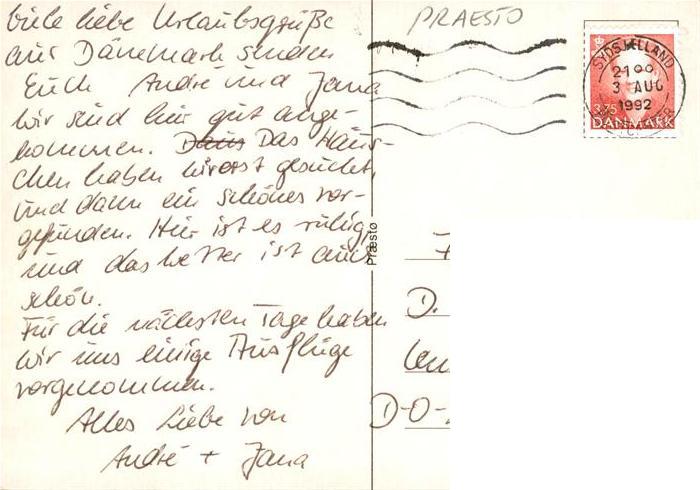 Viele liebe Urlaubsgrüße
aus Dänemark senden
Euch André und Jana
Wir sind hier gut ange-
kommen. Das Häus-
chen haben wir erst gesucht,
und dann ein schönes vor-
gefunden. Hier ist es ruhig,
und das Wetter ist auch
schön.
Für die nächsten Tage haben
wir uns einige Ausflüge
vorgenommen.
Alles Liebe von
André + Jana
PRAESTO
SYDSJÆLLAND
21 00
3 AUG
1992
3.75
DANMARK
Præstø
D.
D-O-